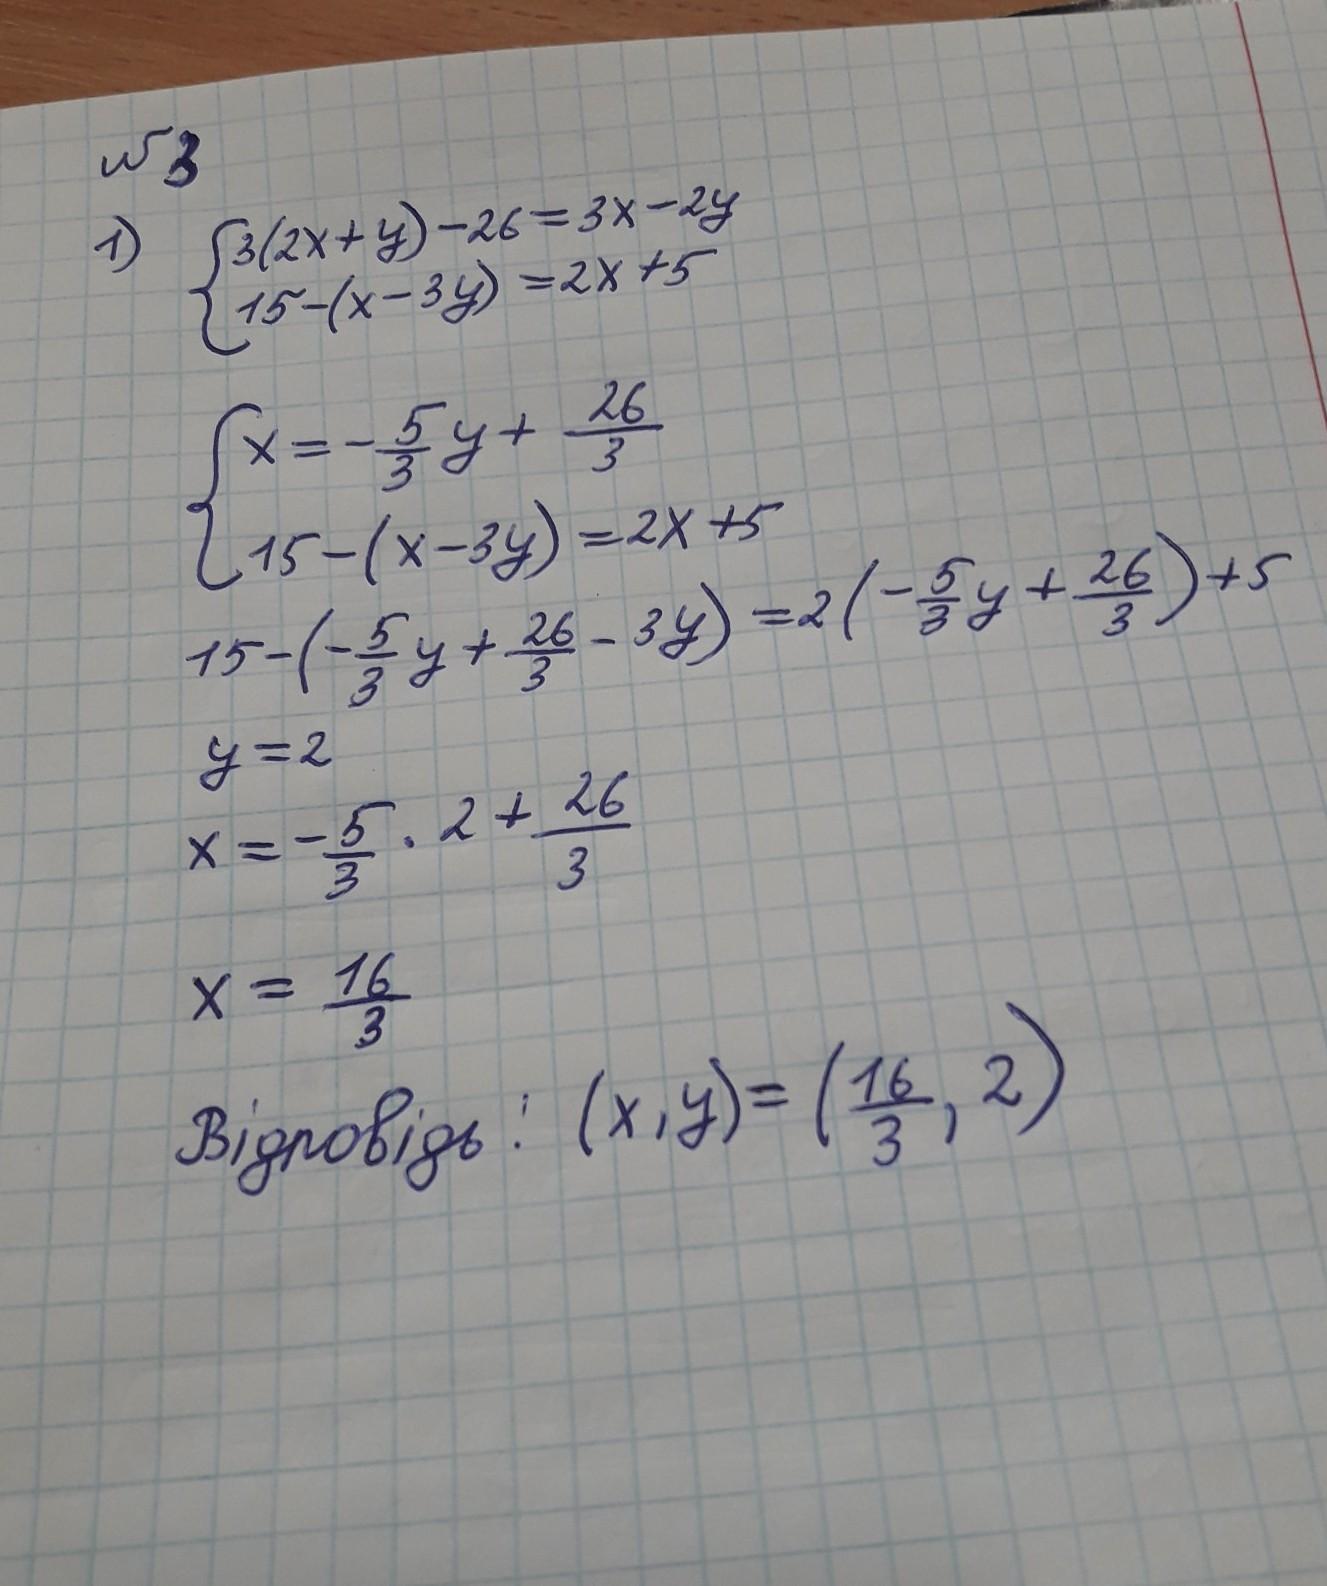 № 3
1) { 3(2x+y)-26=3x-2y
15-(x-3y)=2x+5
{ x=-5/3 y+26/3
15-(x-3y)=2x+5
15-(-5/3 y+26/3-3y)=2(-5/3 y+26/3)+5
y=2
x=-5/3·2+26/3
x=16/3
Відповідь: (x,y)=(16/3,2)